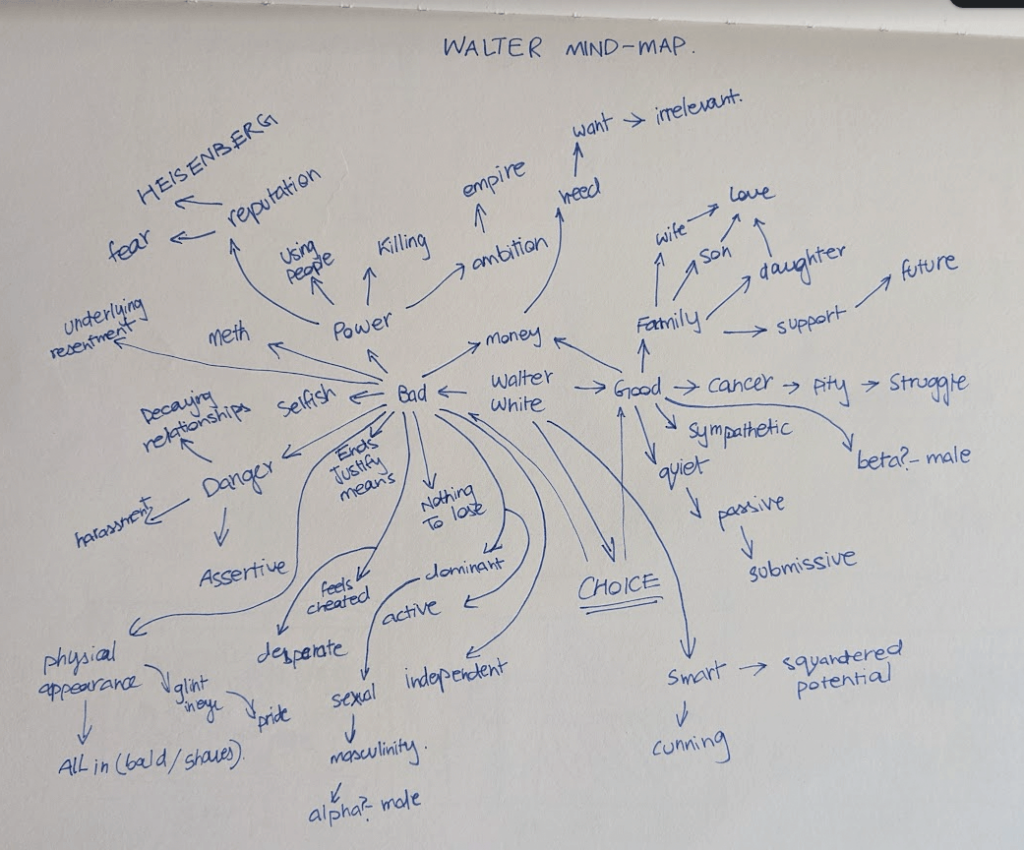 WALTER MIND-MAP.
HEISENBERG
reputation
fear
Using
People
Killing
empire
ambition
want → irrelevant.
need
love
wife
son
daughter
future
Family
support
underlying
resentment
meth
Power
money
Decaying
relationships
Selfish
Bad
Walter
White
Good
Cancer
Pity
Struggle
Sympathetic
beta?- male
quiet
passive
submissive
Danger
harassment
Assertive
Ends
Justify
means
Nothing
To lose
feels
cheated
desperate
dominant
active
independent
CHOICE
physical
appearance
glint
in eye
pride
All in (bald/shaves).
sexual
masculinity.
alpha?- male
Smart
squandered
potential
cunning